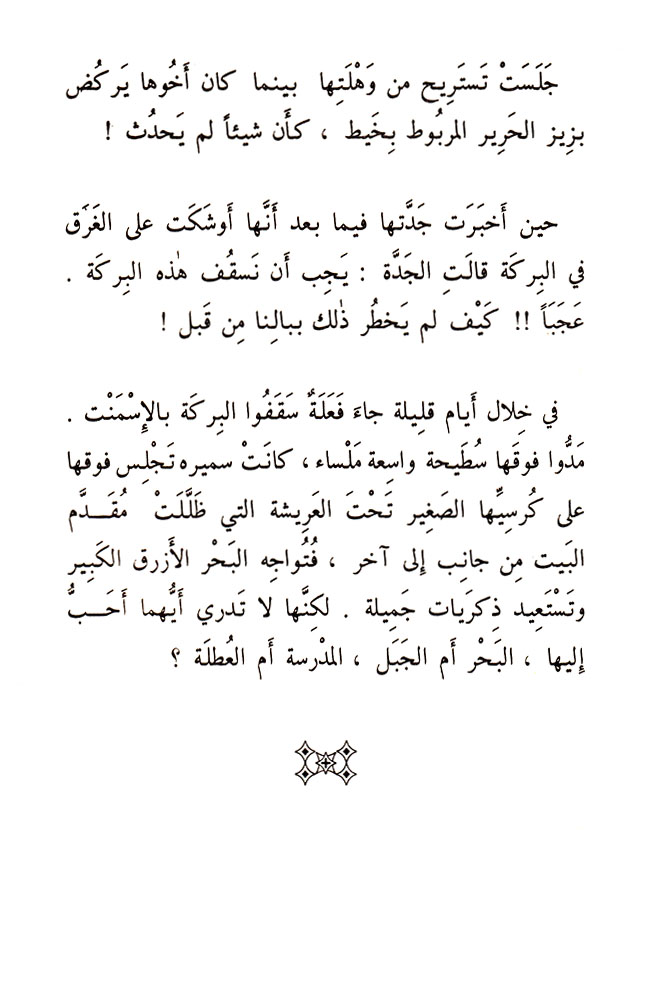 جَلَسَتْ تَستَرِيح من وَهْلَتِها بينما كان أَخُوها يَركُض
بزِيز الحَرِير المربُوط بِخَيط ، كأَن شيئاً لم يَحدُث !
حين أَخبَرَت جَدَّتها فيما بعد أَنَّها أَوشَكَت على الغَرَق
في البِركَة قالَتِ الجَدَّة : يَجِب أَن نَسقُف هٰذه البِركَة .
عَجَبَاً !! كَيْف لم يَخطُر ذٰلك ببالِنا مِن قَبل !
في خِلال أَيام قليلة جاءَ فَعَلَةٌ سَقَفُوا البِركَة بالإِسْمَنْت .
مَدُّوا فوقَها سُطَيحة واسِعة مَلْساء ، كانَتْ سميره تَجْلِس فوقها
على كُرسِيِّها الصَغِير تَحْتَ العَرِيشة التي ظَلَّلَتْ مُقَـدَّم
البَيت مِن جانِب إلى آخر ، فُتُواجِه البَحْر الأَزرق الكَبِير
وتَسْتَعِيد ذِكرَيات جَمِيلة . لكِنَّها لا تَدري أَيُّهما أَحَـبُّ
إليها ، البَحْر أَم الجَبَل ، المدْرسة أَم العُطلَة ؟